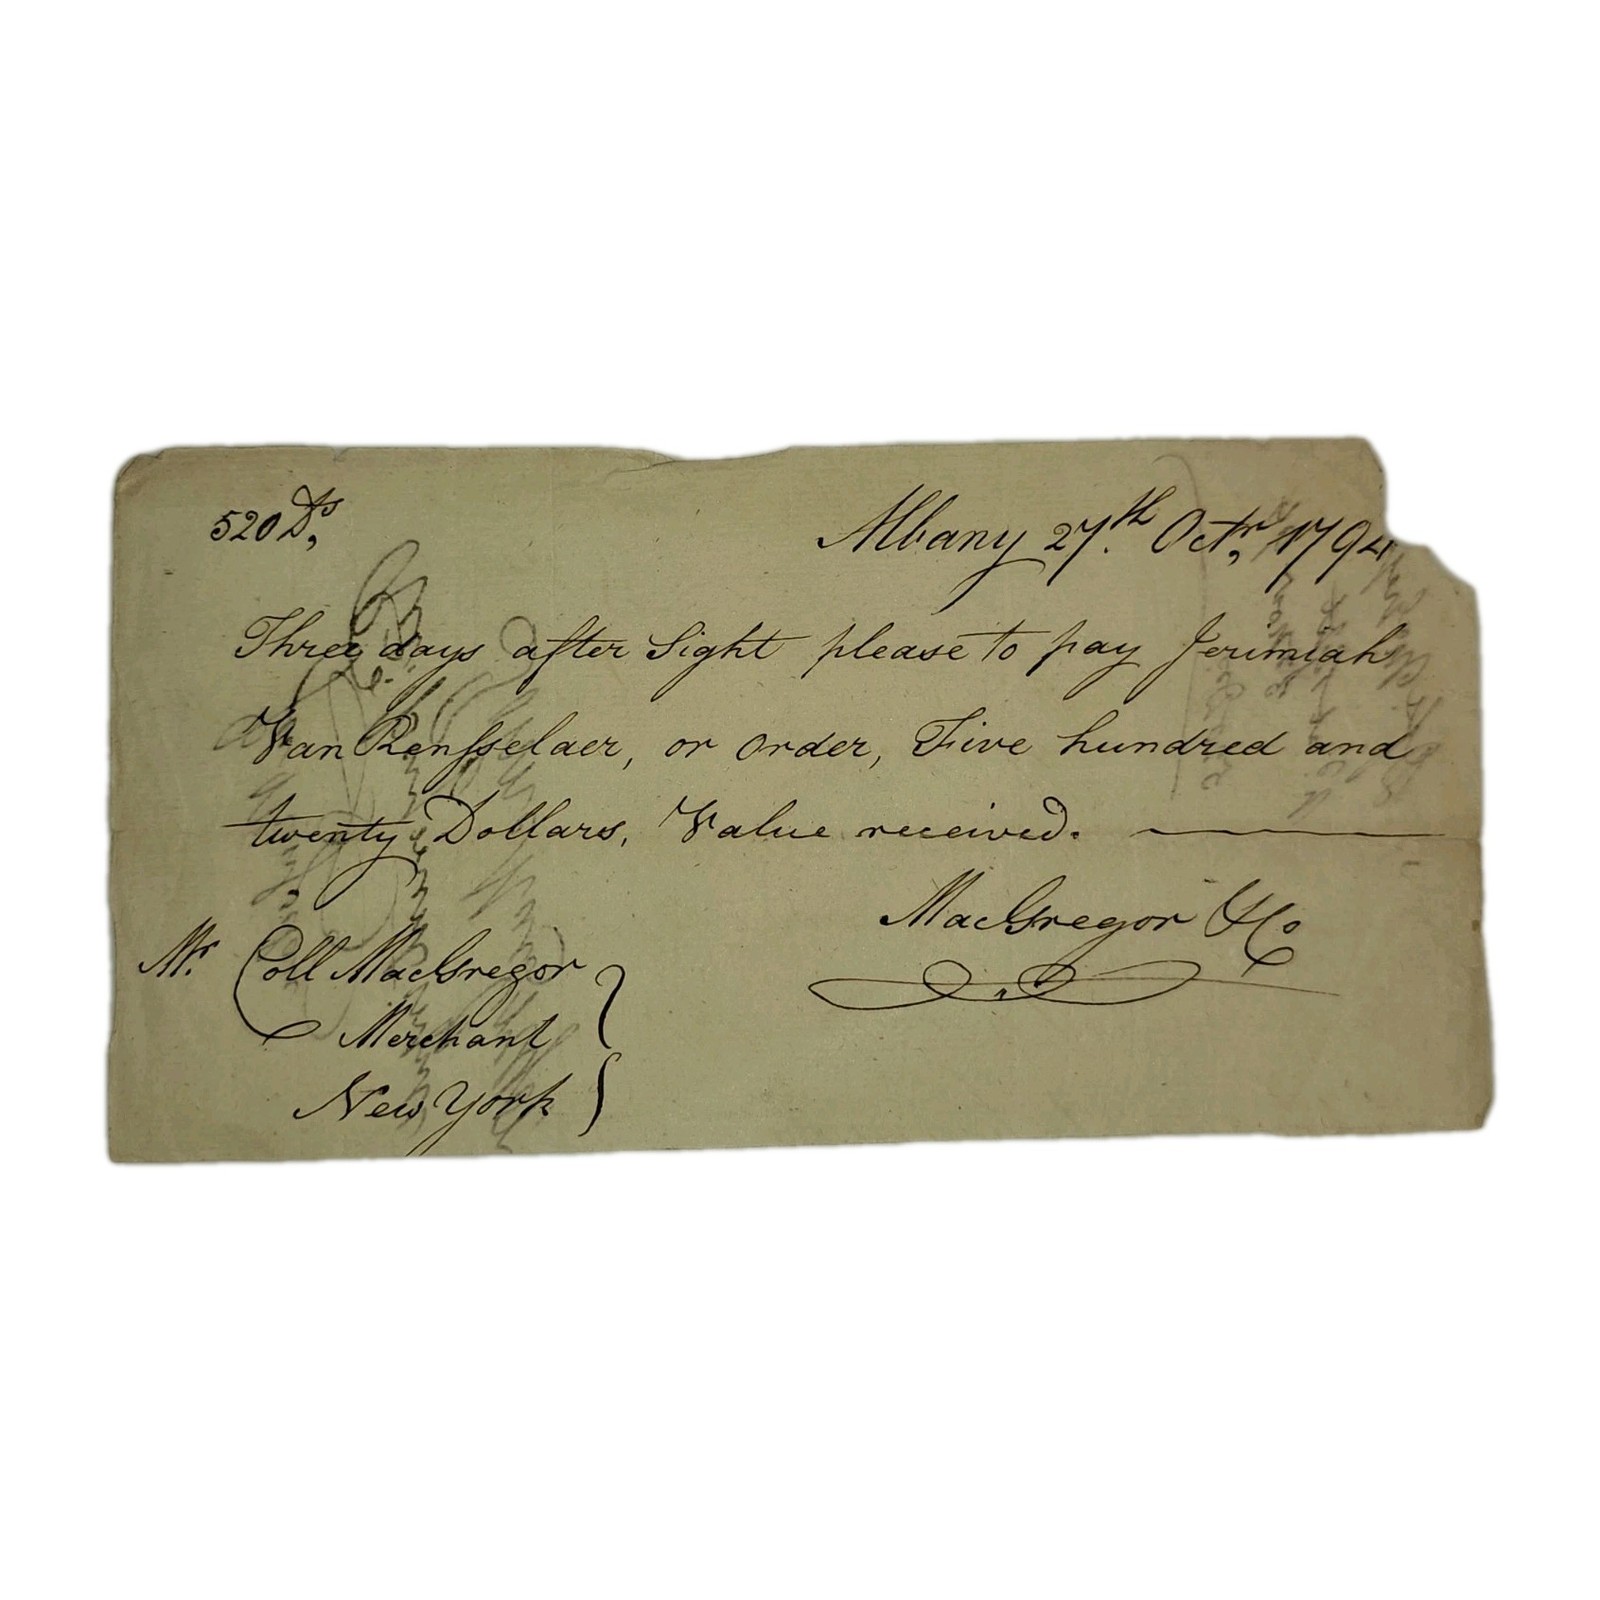 520 Ds,
Albany 27th. Octr, 1794
Three days after Sight please to pay Jerimiah
Van Rensselaer, or order, Five hundred and
twenty Dollars, Value received.
MacGregor & Co
Mr. Coll MacGregor
Merchant
New York